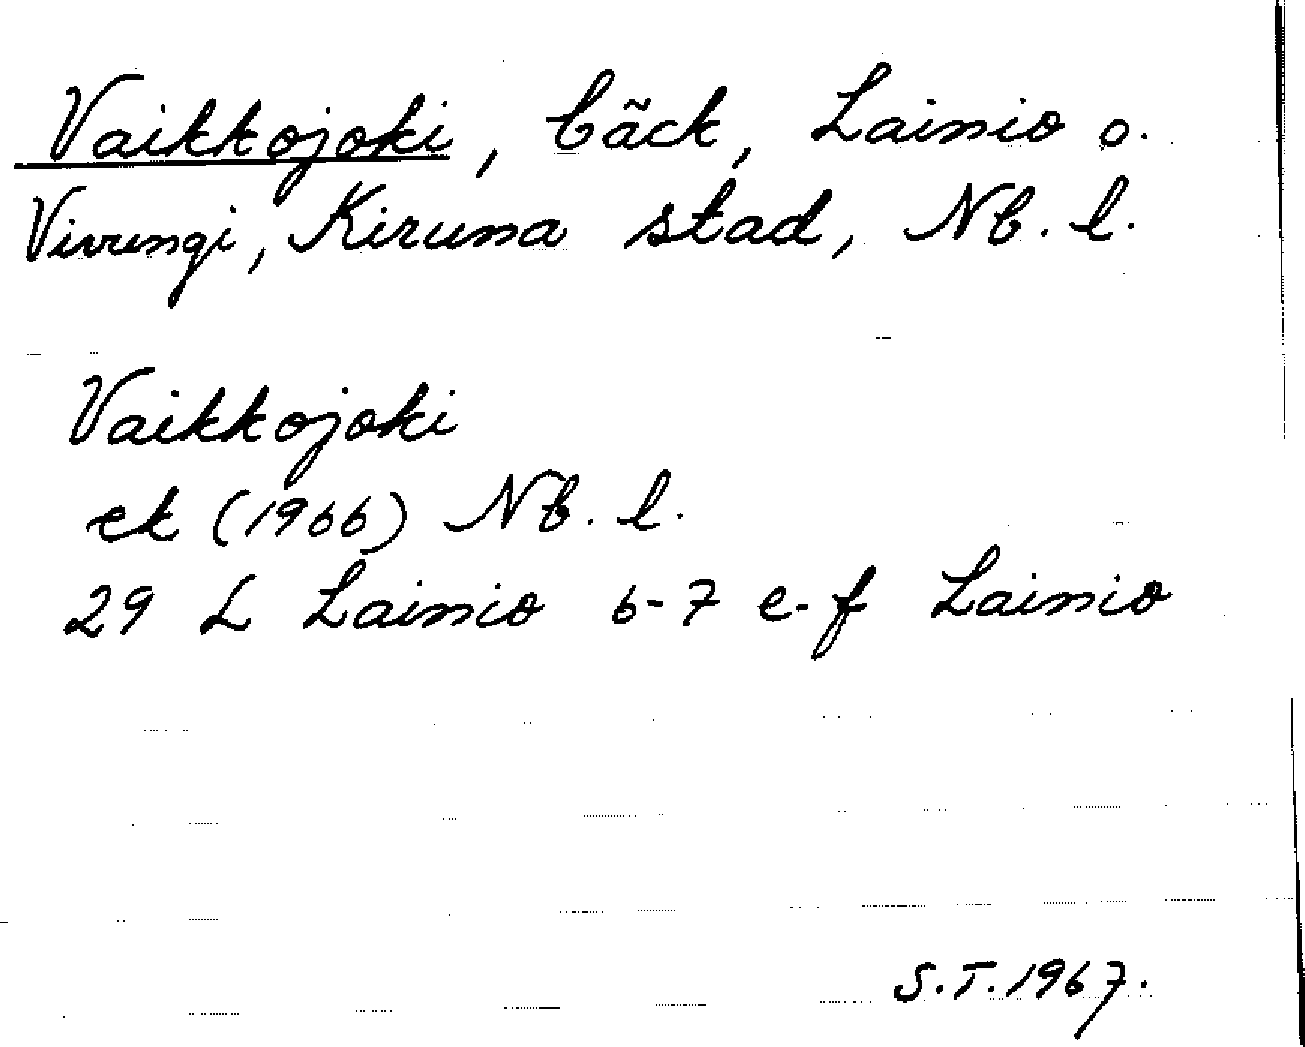 Vaikkojoki, bäck, Lainio o.
Vivungi, Kiruna stad, Nb. l.
Vaikkojoki
ek (1966) Nb. l.
29 L Lainio 6-7 e-f Lainio
S.T. 1967.